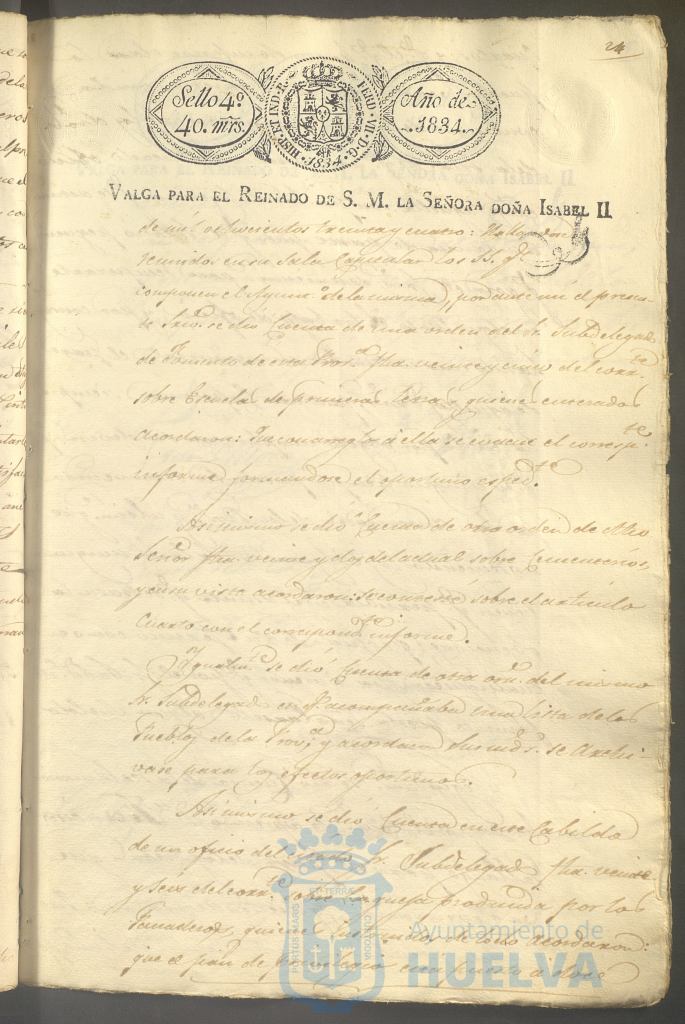 24
Sello 4º
40. mrs.
HISP. ET IND. R. FERD. VII. D. G. 1834.
Año de
1834.
VALGA PARA EL REINADO DE S. M. LA SEÑORA DOÑA ISABEL II
de mil ochocientos treinta y cuatro: Hallandose
reunidos en su Sala Capitular los SS. qe.
componen el Ayunto. de la misma, por ante mi el presen-
te Srio. se dió Cuenta de una orden del Sr. Subdelegado
de Fomento de esta Prova. fha. veinte y cinco del corrte.
sobre Escuelas de primeras letras, quienes enterados
acordaron: Que con arreglo á ella se evacue el correspte.
informe formandose el oportuno espedte.
Asimismo se dió Cuenta de otra orden de dho
Señor fha. veinte y dos del actual sobre Cementerios,
y en su vista acordaron: se conteste sobre el artículo
Cuarto con el correspondte. informe.
Igualmte. se dió Cuenta de otra orn. del mismo
Sr. Subdelegado en qe. acompañaba una lista de los
Pueblos de la Prova. y acordaron Sus mds. se Archi-
vase para los efectos oportunos.
Asimismo se dió Cuenta en este Cabildo
de un oficio del citado Sr. Subdelegado fha. veinte
y seis del corrte. sobre la queja producida por los
Panaderos, quienes de todo acordaron:
que el pan de
PORTUS MARIS ET TERRÆ CUSTODIA
Ayuntamiento de
HUELVA